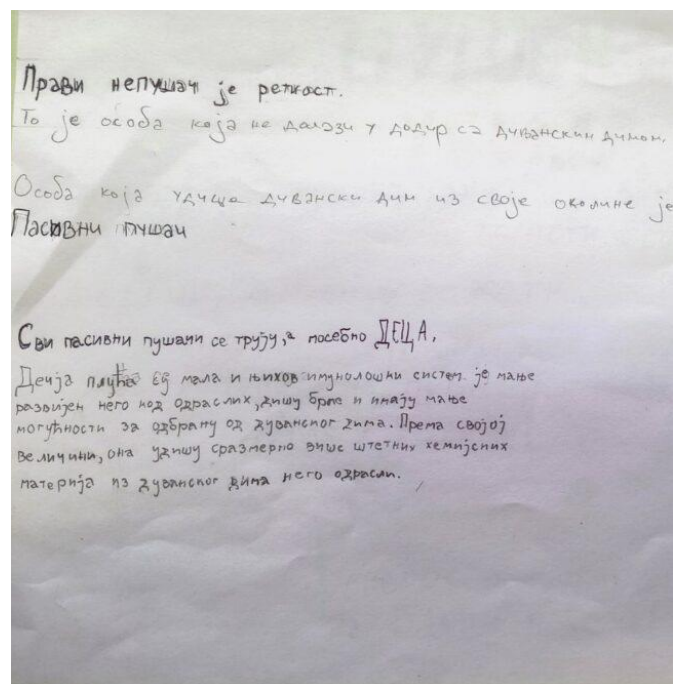 Прави непушач је реткост.
То је особа која не долази у додир са дуванским димом.
Особа која удише дувански дим из своје околине је
Пасивни пушач
Сви пасивни пушачи се трују, а посебно ДЕЦА.
Дечја плућа су мала и њихов имунолошки систем је мање
развијен него код одраслих, дишу брже и имају мање
могућности за одбрану од дуванског дима. Према својој
величини, она удишу сразмерно више штетних хемијских
материја из дуванског дима него одрасли.